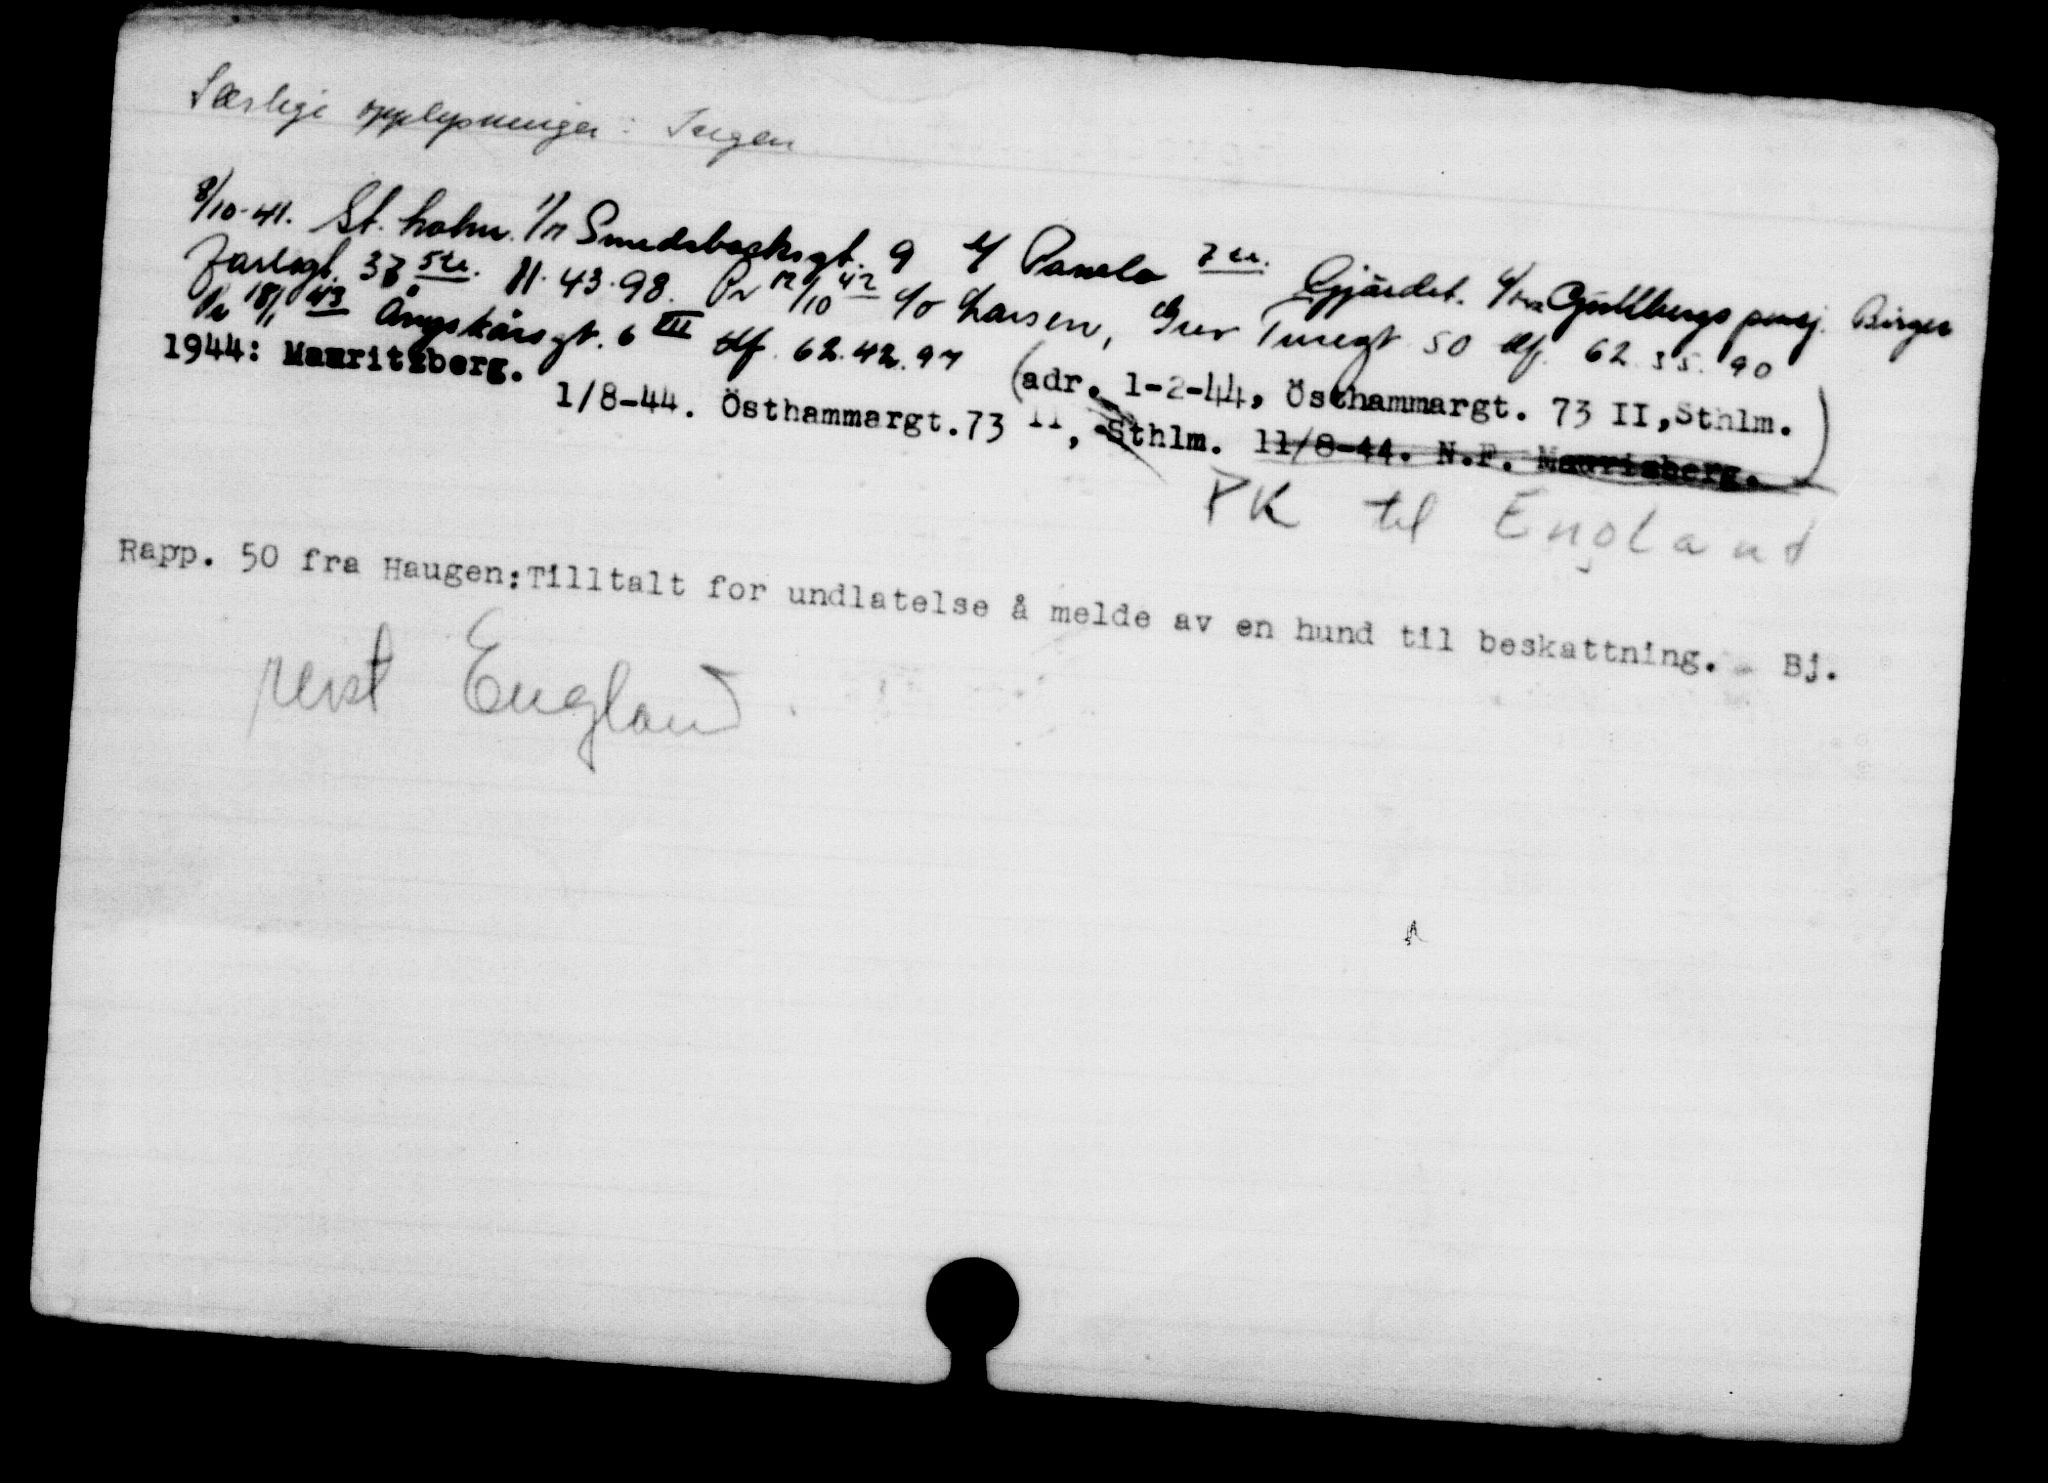 Særlige opplysninger: Ingen
8/10-41. St. holm. 1/11 Smedsbacksgt. 9 c/ Panelo 7 tr. Gjärdet. Gullbergs pensj. Birger
Jarlsgt. 37 5 tr. 11.43.98. Pr 12/10 42 c/o Larsen, Grev Turegt 50 tlf. 62.55.90
Pr 18/1 43 Ångskärsgt. 6 III tlf. 62.42.97 (adr. 1-2-44, Östhammargt. 73 II, Sthlm.)
1944: Mauritzberg. 1/8-44. Östhammargt.73 II, Sthlm. 11/8-44. N.F. Maurisberg.
PK til England
Rapp. 50 fra Haugen:Tilltalt for undlatelse å melde av en hund til beskattning. Bj.
reist England